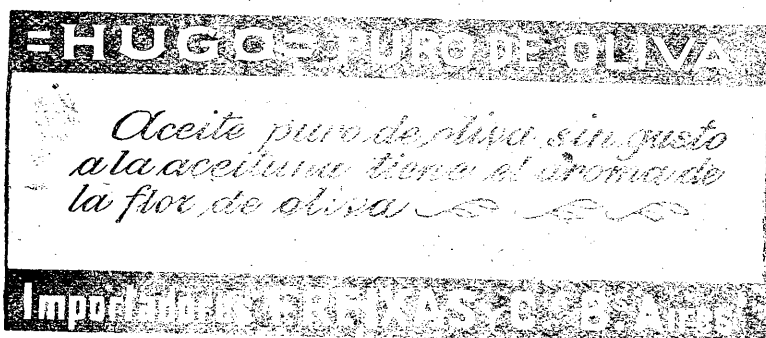 =HUGO= PURO DE OLIVA
Aceite puro de oliva sin gusto
a la aceituna tiene el aroma de
la flor de oliva
Importadores FREIXAS y Cª B. Aires